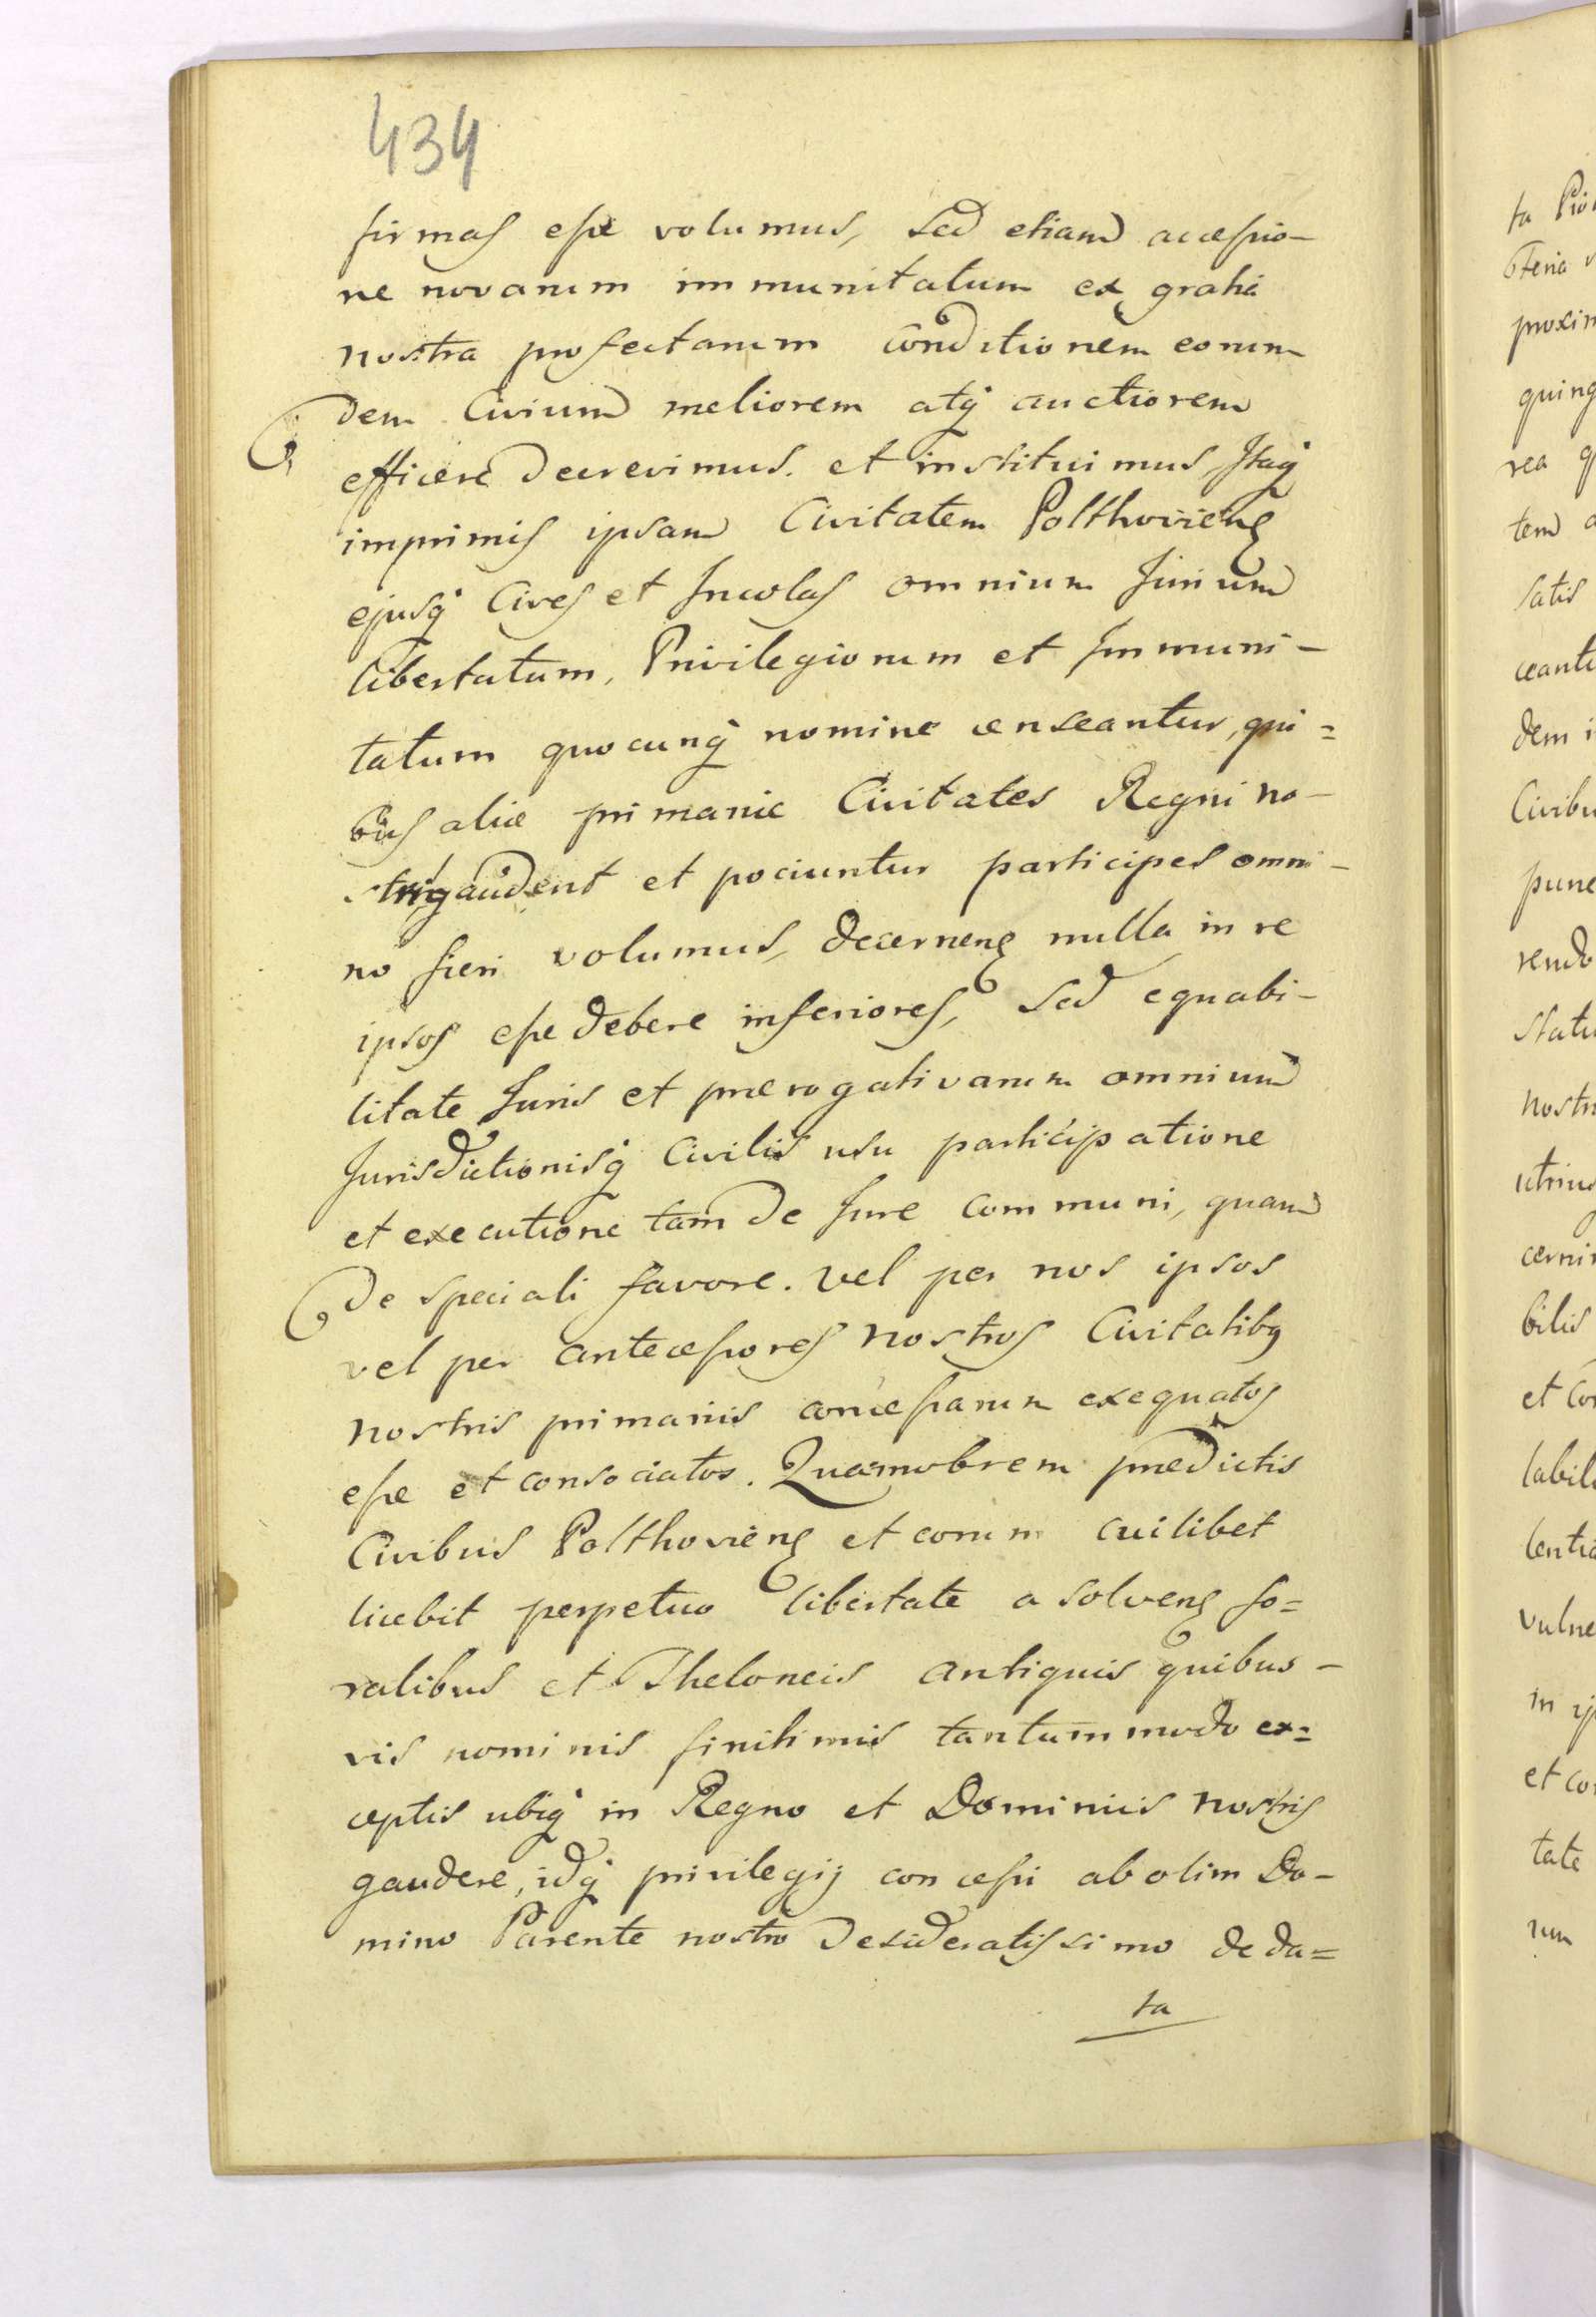 434
firmas esse volumus, sed etiam accessio-
ne novarum immunitatum ex gratia
nostra profectarum conditionem eorun
dem Civium meliorem atq́ auctiorem
efficere decrevimus. et instituimus, Itaq́
imprimis ipsam Civitatem Polthovieng
ejusq́ Cives et Incolas omnium Jurium
libertatum, Privilegiorum et Immuni-
tatum quocunq́ nomine censeantur, qui=
bus aliæ primariæ Civitates Regni no-
stri gaudent et pociuntur participes omni-
no fieri volumus, decerneng nulla in re
ipsos esse debere inferiores, sed equabi-
litate Juris et prærogativarum omnium
Jurisdictionisq́ Civilis usu participatione
et executione tam de Jure communi, quam
de speciali favore. vel per nos ipsos
vel per antecessores nostros Civitatibq
nostris primariis concessarum exequatos
esse et consociatos. Quamobrem prædictis
Civibus Polthovieng et eorum cuilibet
licebit perpetuo libertate a solveng fo=
ralibus et Theloneis antiquis quibus-
vis nominis finitimis tantummodo ex=
ceptis ubiq́ in Regno et Dominiis nostris
gaudere, idq́ privilegij concessi ab olim Do-
mino Parente nostro desideratissimo de da=
ta
ta
proxim
quinq
rea q
tem
satis
ceantu
dem i
Civibu
pune
rendo
Statu
nostr
utrius
cerni
bilis
et Co
labil
lentia
vulne
in ip
et co
tate